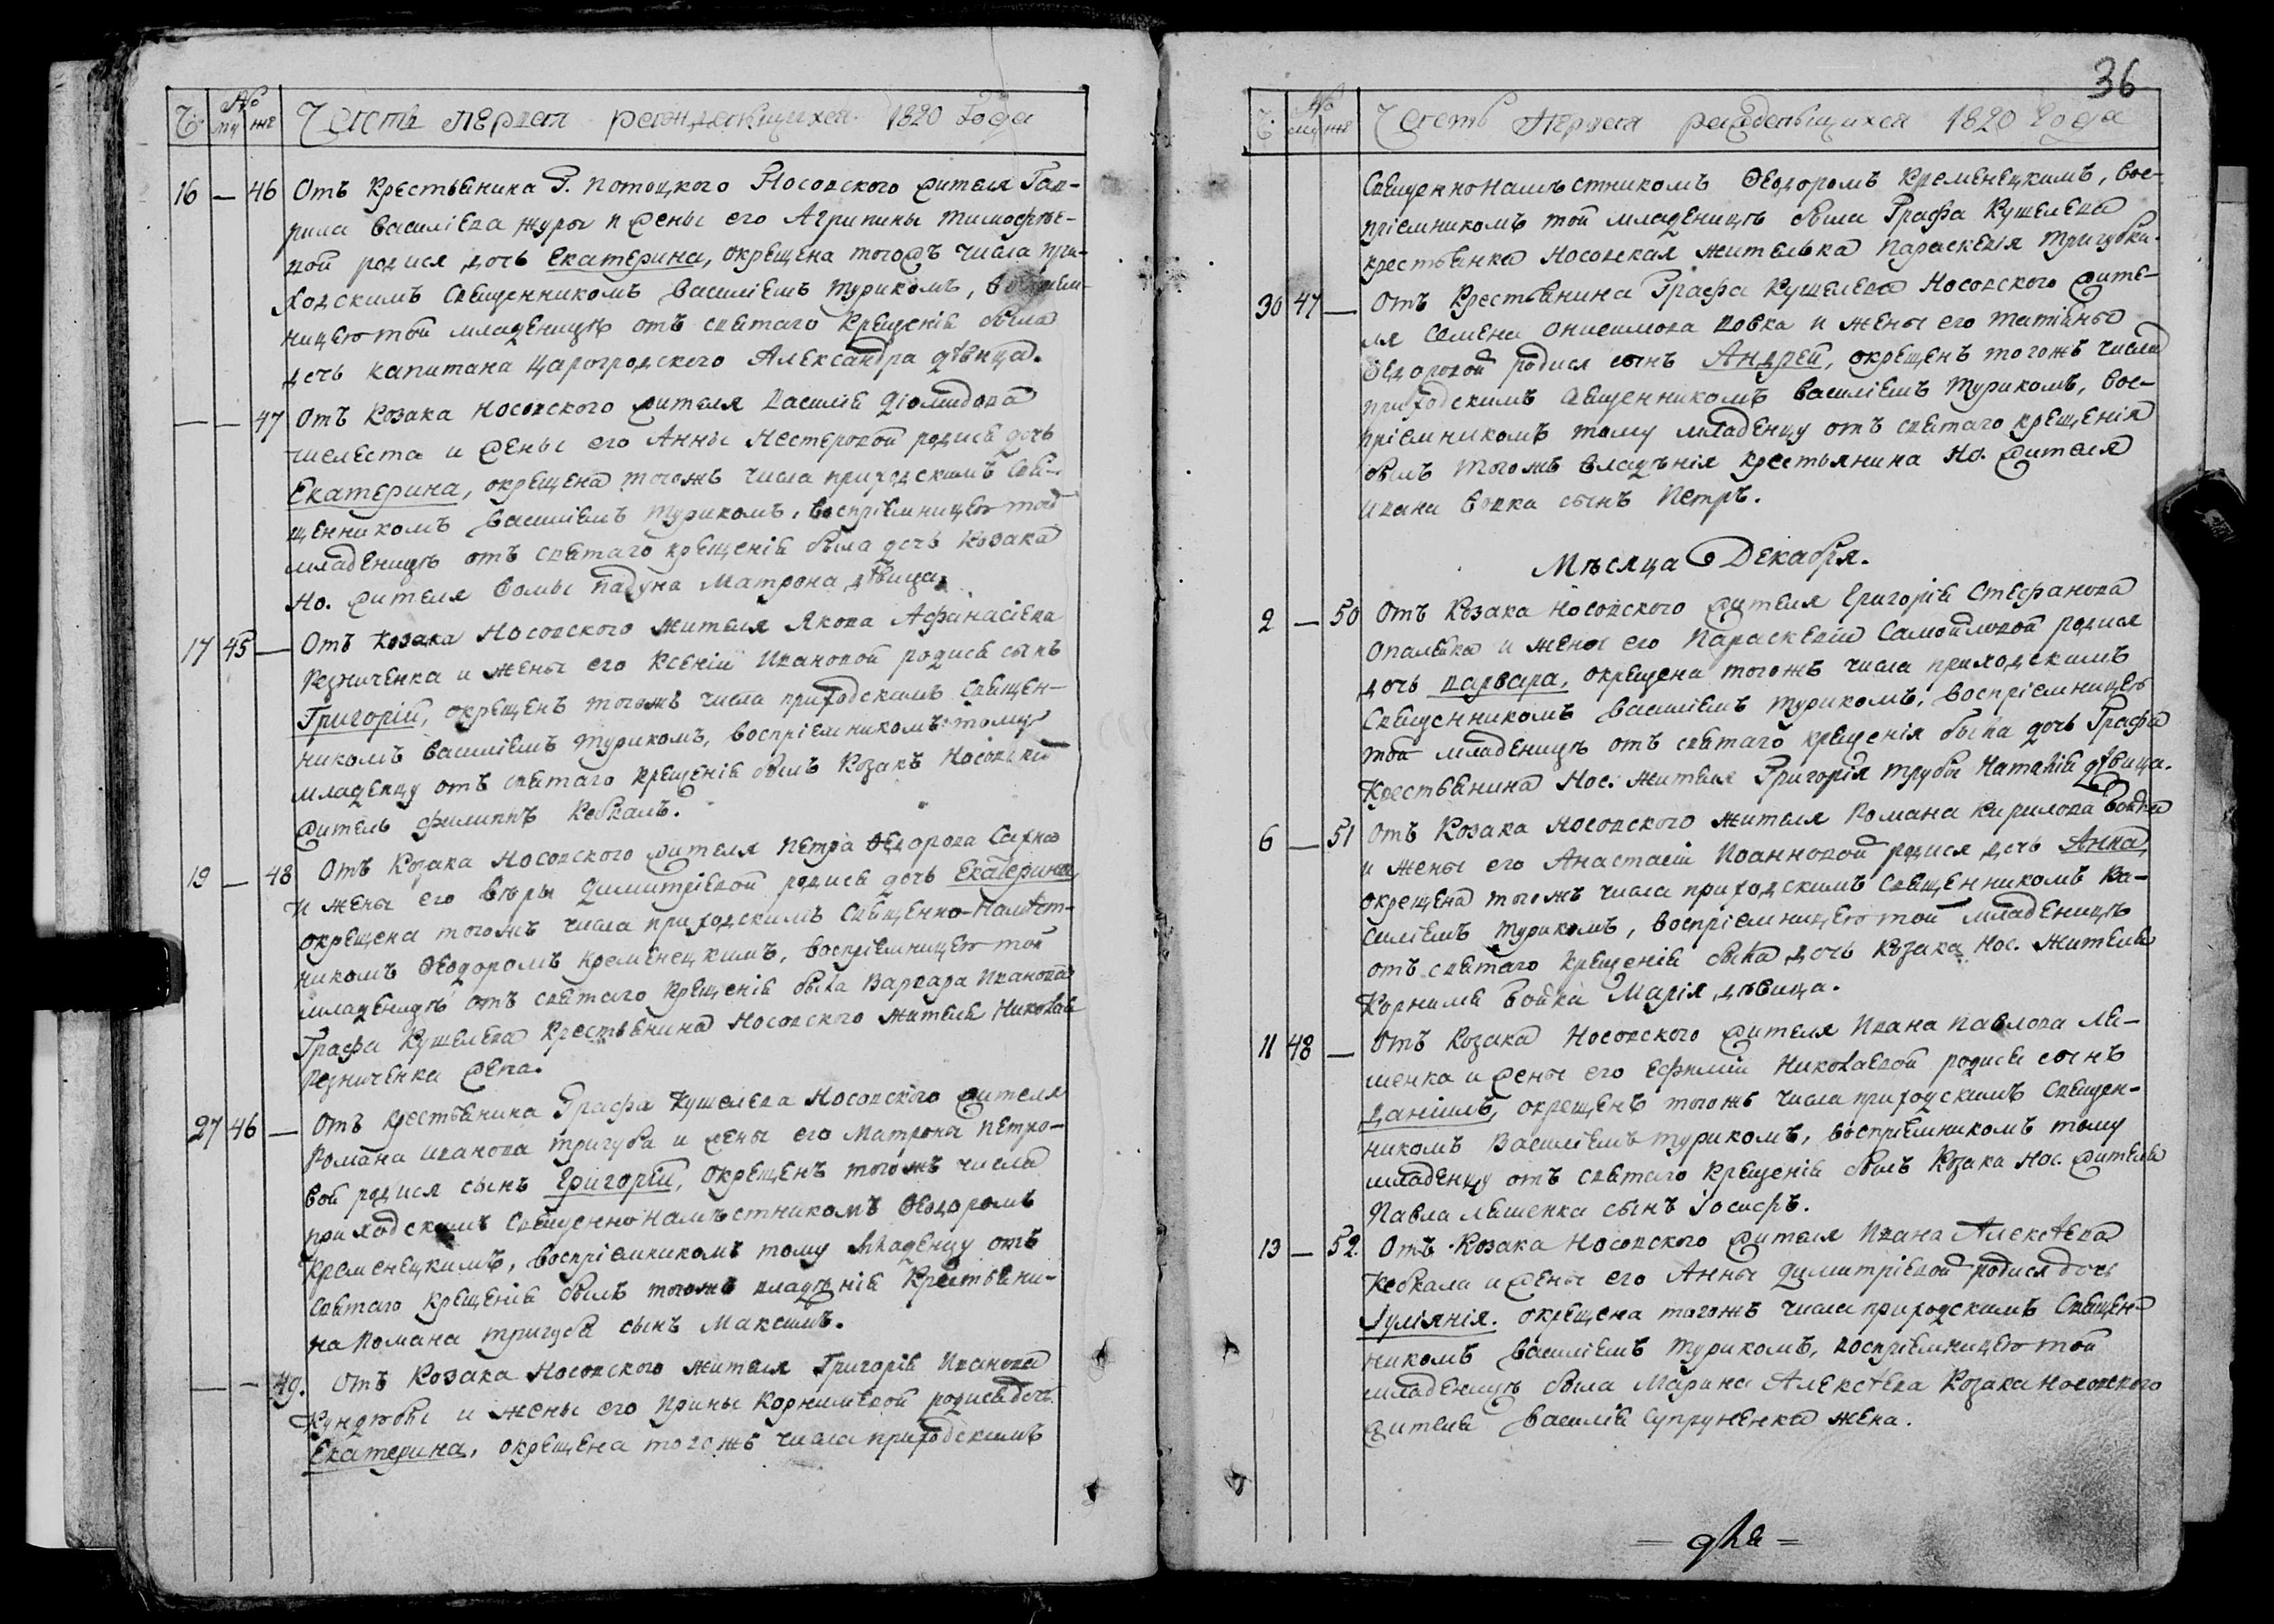 Ч. № му же Часть первая раждающихся 1820 Года
16 — 46 Отъ Крестьянина Г. Потоцкого Носовского жителя Гав-
рила Василіева журы и жены его Агрипины Тимофѣе-
вой родися дочь Екатерина, окрещена тогожъ числа при-
ходскимъ Священникомъ Василіемъ Турикомъ,
ницею той младеницѣ отъ святаго Крещенія была
дочь капитана Царогродского Александра дѣвица.
— — 47 Отъ Козака Носовского жителя Василія Діомидова
и жены его Анны Нестеровой родися дочь
Екатерина, окрещена тогожъ числа приходскимъ Свя-
щенникомъ Василіемъ Турикомъ, воспріемницею той
младеницѣ отъ святаго крещенія была дочь Козака
Но. жителя Фомы Падуна Матрона дѣвица.
17 45 — Отъ Козака Носовского жителя Якова Афанасіева
Резниченка и жены его Ксеніи Ивановой родися сынъ
Григорій, окрещенъ тогожъ числа приходскимъ Священ-
никомъ Василіемъ Турикомъ, воспріемникомъ тому
младенцу отъ святаго крещенія былъ Козакъ Носовскій
житель Филиппъ Кебкалъ.
19 — 48 Отъ Козака Носовского жителя Петра Ѳедорова Сахна
и жены его Вѣры Димитріевой родися дочь Екатерина
окрещена тогожъ числа приходскимъ Священно-Намѣст-
никомъ Ѳеодоромъ Кременецкимъ, воспріемницею той
младеницѣ отъ святаго крещенія была Варвара Иванова
Графа Кушелева Крестьянина Носовского жителя Николая
Резниченка жена.
27 46 — Отъ Крестьянина Графа Кушелева Носовского жителя
Романа Иванова Тригуба и жены его Матроны Петро-
вой родися сынъ Григорій, окрещенъ тогожъ числа
приходскимъ Священнонамѣстникомъ Ѳеодоромъ
Кременецкимъ, воспріемникомъ тому младенцу отъ
святаго крещенія былъ тогожъ владѣнія Крестьяни-
на Романа Тригуба сынъ Максимъ.
— — 49. Отъ Козака Носовского жителя Григорія Иванова
Кундюбы и жены его Ирины Корниліевой родися дочь
Екатерина, окрещена тогожъ числа приходскимъ
36
Ч. № му же Часть Первая раждающихся 1820 Года
Священнонамѣстникомъ Ѳеодоромъ Кременецкимъ, вос-
пріемникомъ той младеницѣ была Графа Кушелева
крестьянка Носовская жителька Параскевія Тригубка.
30 47 — Отъ Крестьянина Графа Кушелева Носовского жите-
ля Семена Онисимова Вовка и жены его Татіаны
Ѳедоровой родися сынъ Андрей, окрещенъ тогожъ числа
приходскимъ Священникомъ Василіемъ Турикомъ, вос-
пріемникомъ тому младенцу отъ святаго крещенія
былъ тогожъ владѣнія крестьянина Но. жителя
Ивана Вовка сынъ Петръ.
Мѣсяца Декабря.
2 — 50 Отъ Козака Носовского жителя Григорія Стефанова
Опалька и жены его Параскевіи Самойловой родися
дочь Варвара, окрещена тогожъ числа приходскимъ
Священникомъ Василіемъ Турикомъ, воспріемницею
той младеницѣ отъ святаго крещенія была дочь Графа
Крестьянина Нос. жителя Григорія Трубы Наталія дѣвица.
6 — 51 Отъ Козака Носовского жителя Романа Кирилова Бойка
и жены его Анастасіи Иоанновой родися дочь Анна,
окрещена тогожъ числа приходскимъ Священникомъ Ва-
силіемъ Турикомъ, воспріемницею той младеницѣ
отъ святаго крещенія была дочь Козака Нос. жителя
Корнилія Бойка Марія дѣвица.
11 48 — Отъ Козака Носовского жителя Ивана Павлова Ля-
шенка и жены его Ефиміи Николаевой родися сынъ
Даніилъ, окрещенъ тогожъ числа приходскимъ Священ-
никомъ Василіемъ Турикомъ, воспріемникомъ тому
младенцу отъ святаго крещенія былъ Козака Нос. жителя
Павла Ляшенка сынъ Іосифъ.
13 — 52. Отъ Козака Носовского жителя Ивана Алексѣева
Кебкала и жены его Анны Димитріевой родися дочь
Іуліянія. окрещена тогожъ числа приходскимъ Священ-
никомъ Василіемъ Турикомъ, воспріемницею той
младеницѣ была Марина Алексѣева Козака Носовского
жителя Василія Супруненка жена.